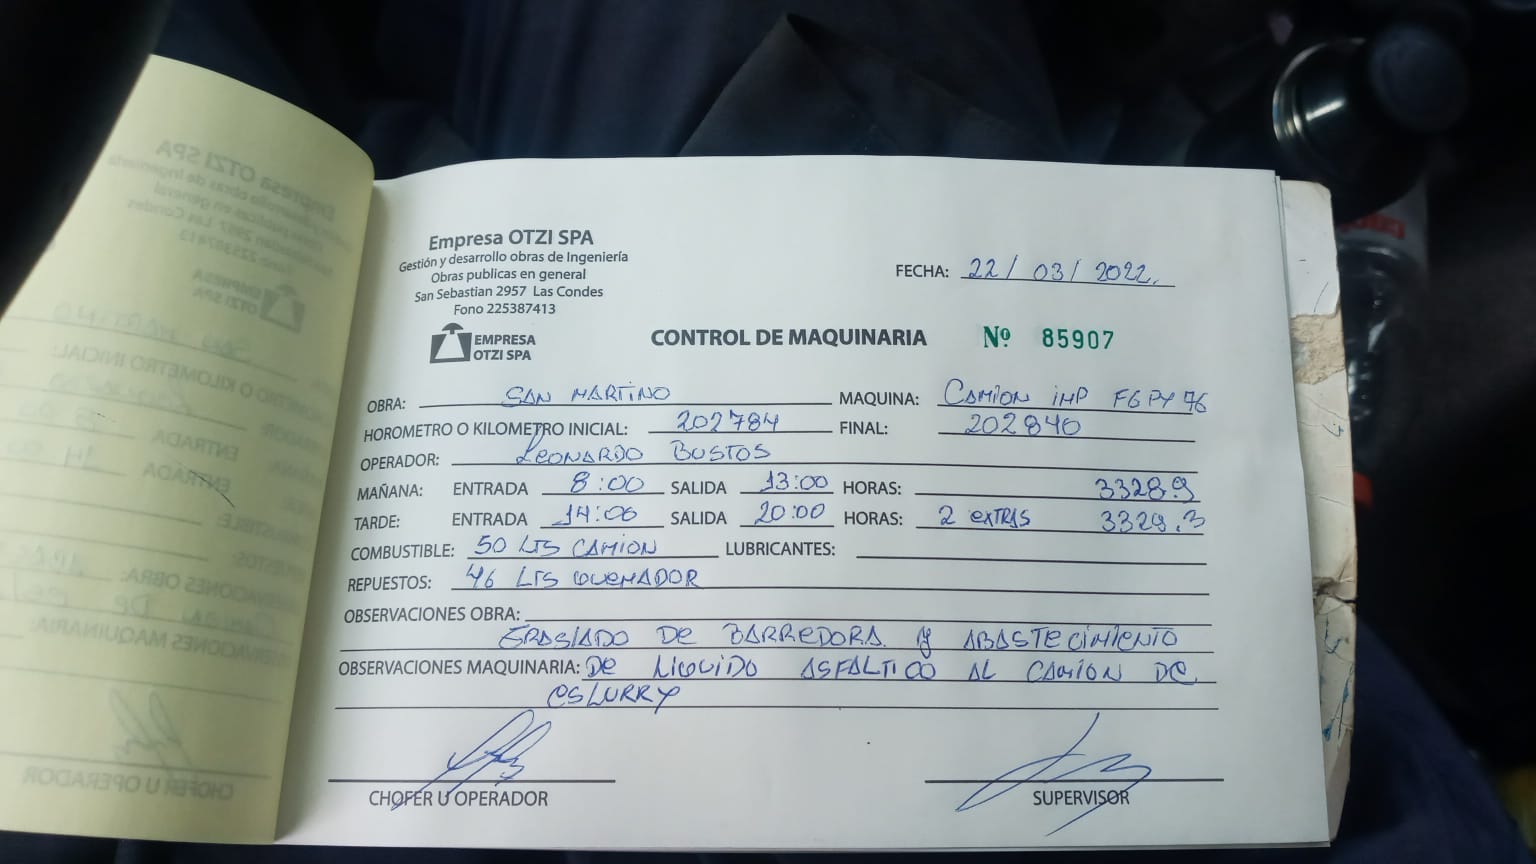 Empresa OTZI SPA
Gestión y desarrollo obras de Ingeniería
Obras publicas en general
San Sebastian 2957 Las Condes
Fono 225387413
EMPRESA
OTZI SPA
FECHA: 22/ 03/ 2022.
CONTROL DE MAQUINARIA Nº 85907
OBRA: SAN MARTINO MAQUINA: CAMION IMP FGPY76
HOROMETRO O KILOMETRO INICIAL: 202784 FINAL: 202840
OPERADOR: LEONARDO BUSTOS
MAÑANA: ENTRADA 8:00 SALIDA 13:00 HORAS: 3328.9
TARDE: ENTRADA 14:00 SALIDA 20:00 HORAS: 2 EXTRAS 3329.3
COMBUSTIBLE: 50 LTS CAMION LUBRICANTES:
REPUESTOS: 46 LTS QUEMADOR
OBSERVACIONES OBRA:
TRASLADO DE BARREDORA Y ABASTECIMIENTO
OBSERVACIONES MAQUINARIA: DE LIQUIDO ASFALTICO AL CAMION DE
ESLURRY
CHOFER U OPERADOR SUPERVISOR